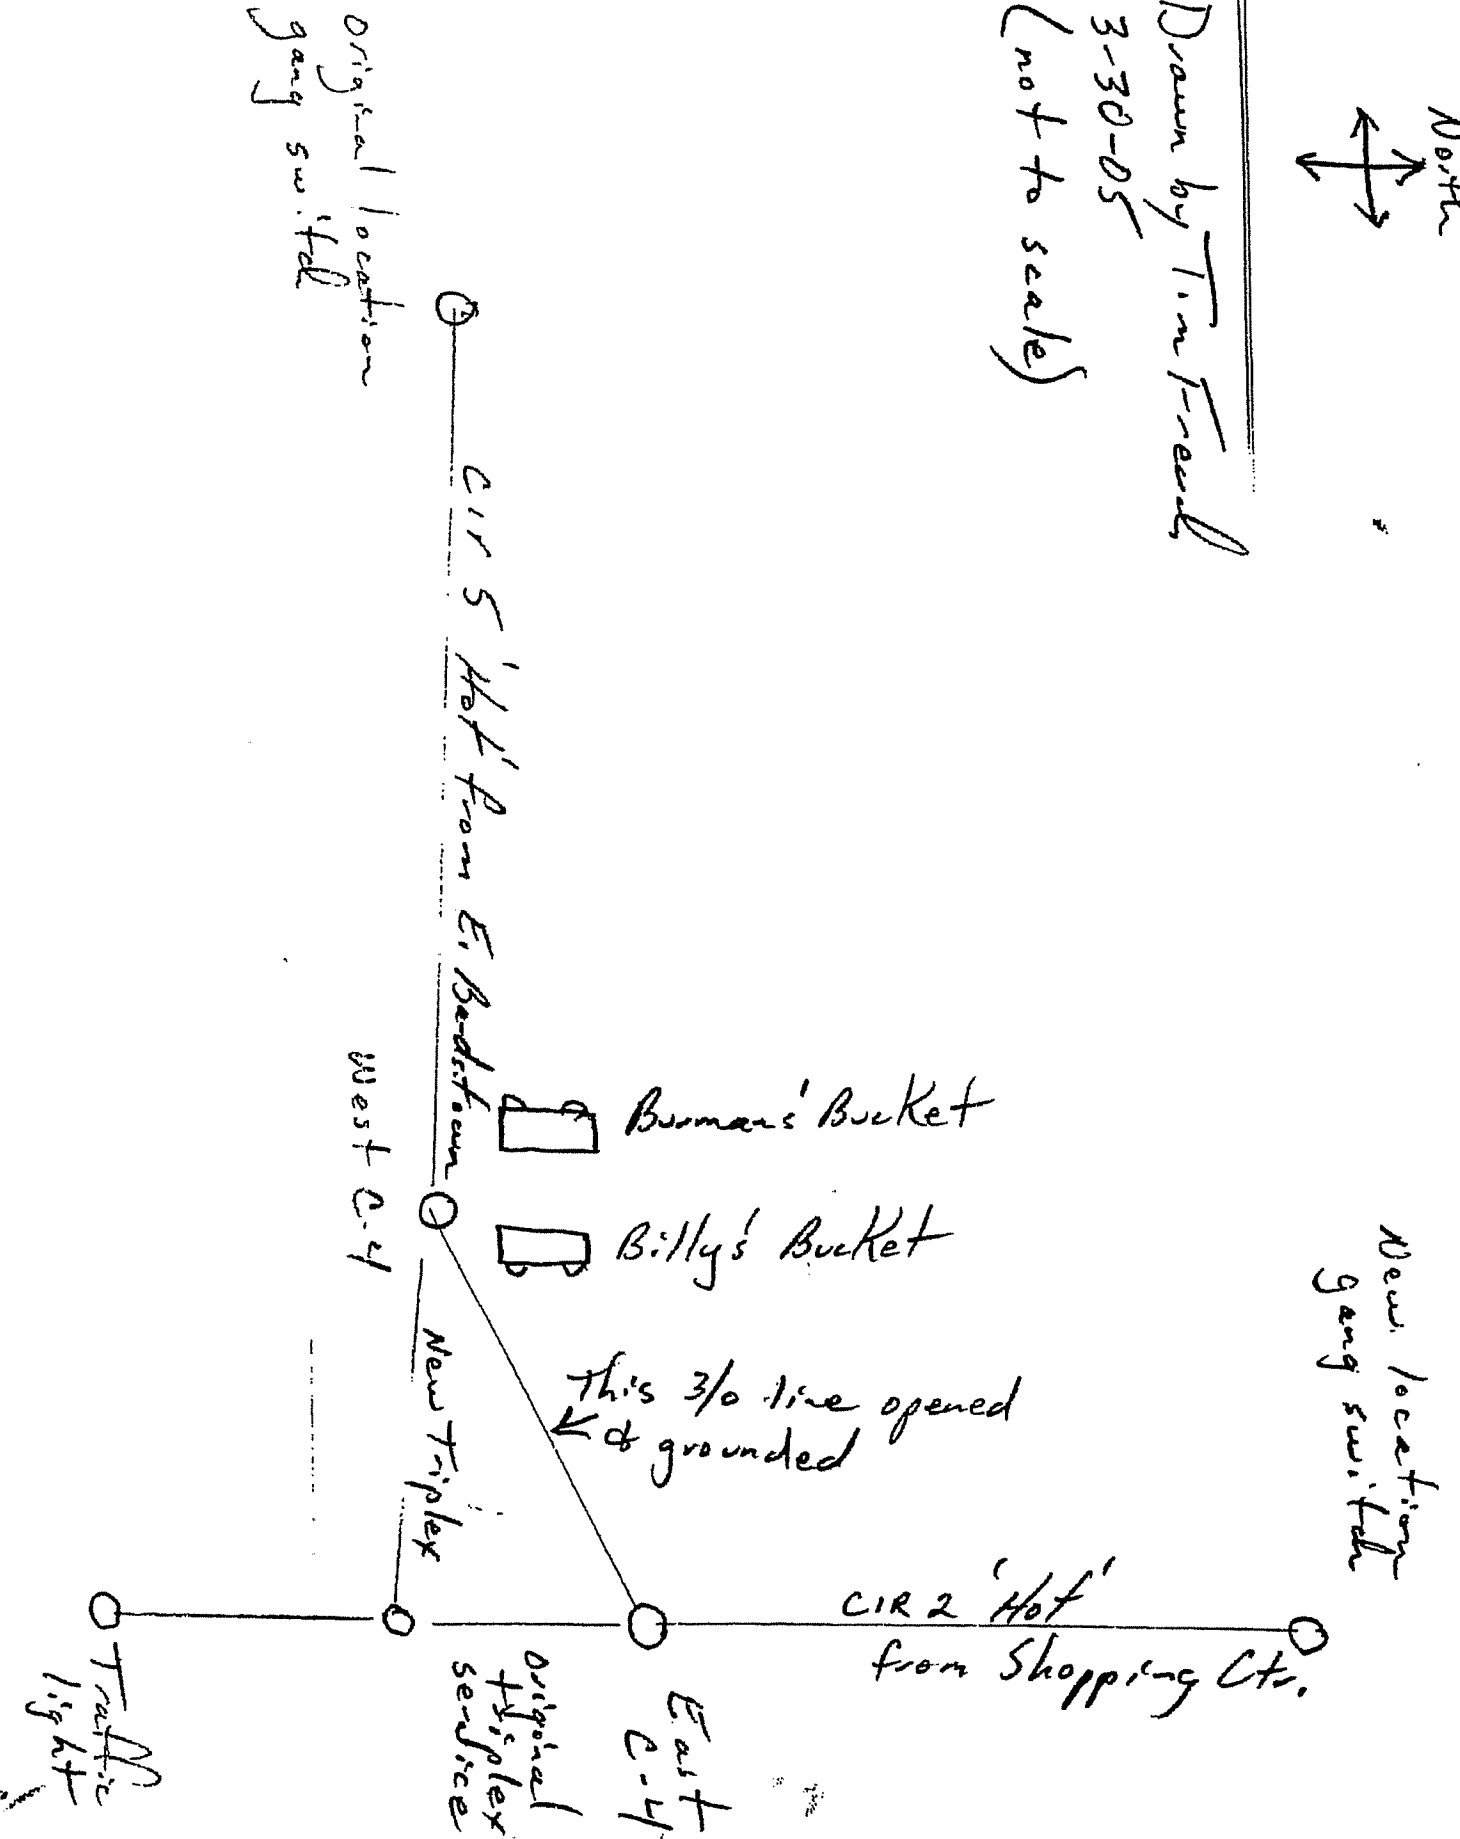 North
Drawn by Tim
3-30-05
(not to scale)
Original location
gang switch
Cir 5 'Hot' from E. Bardstown
West C-4
Burman's Bucket
Billy's Bucket
New location
gang switch
This 3/0 line opened
& grounded
New Triplex
CIR 2 'Hot'
from Shopping Ctr.
East
C-4
Original
triplex
service
Traffic
light